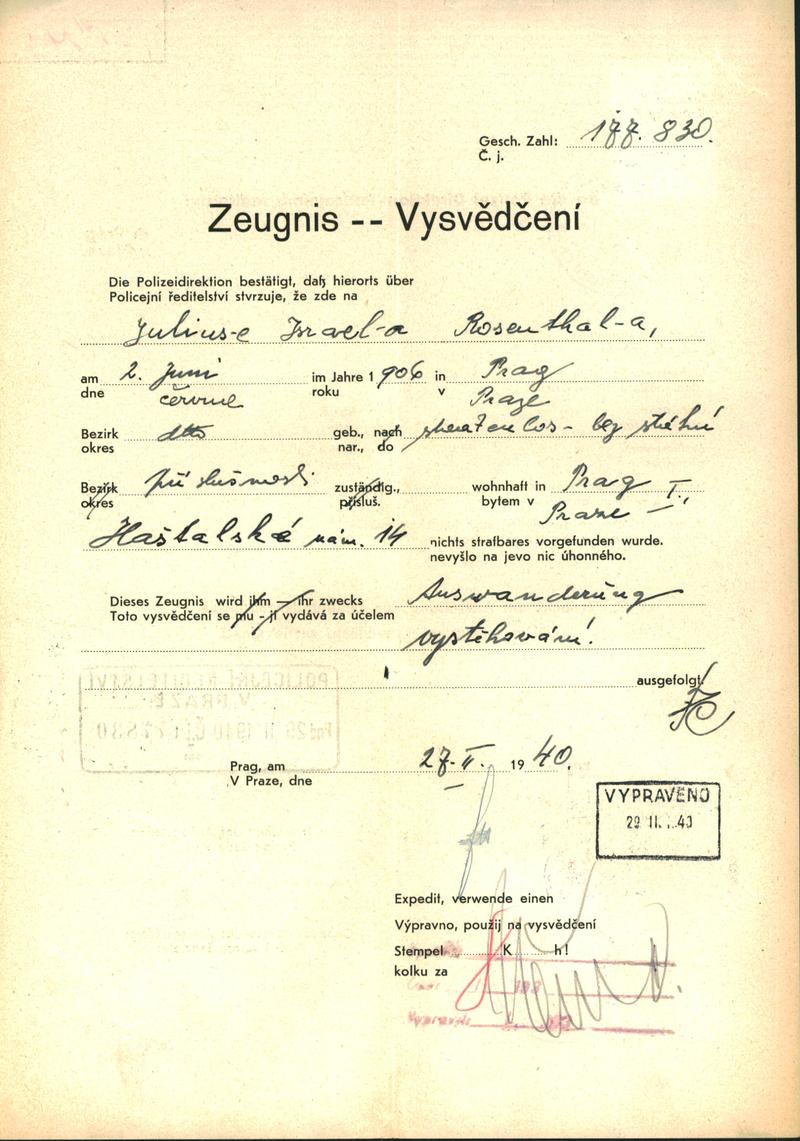 Gesch. Zahl: 177.830.
Č. j.
Zeugnis -- Vysvědčení
Die Polizeidirektion bestätigt, daß hierorts über
Policejní ředitelství stvrzuje, že zde na
Julius-e Israel-a Rosenthal-a,
am 2. Juni im Jahre 1906 in Prag
dne června roku v Praze
Bezirk dtto geb., nach staatenlos - bez státní
okres nar., do
Bezirk příslušnosti zuständig., wohnhaft in Prag I.,
okres přísluš. bytem v Praze
Haštalské nám. 14 nichts strafbares vorgefunden wurde.
nevyšlo na jevo nic úhonného.
Dieses Zeugnis wird ihm — ihr zwecks Auswanderung
Toto vysvědčení se mu - jí vydává za účelem
vystěhování!
ausgefolgt!
POLICEJNÍ ŘEDITELSTVÍ
V PRAZE
Prag, am 27. II. 1940.
V Praze, dne
VYPRAVENO
29. II. 40
Expedit, verwende einen
Výpravno, použij na vysvědčení
Stempel K h!
kolku za